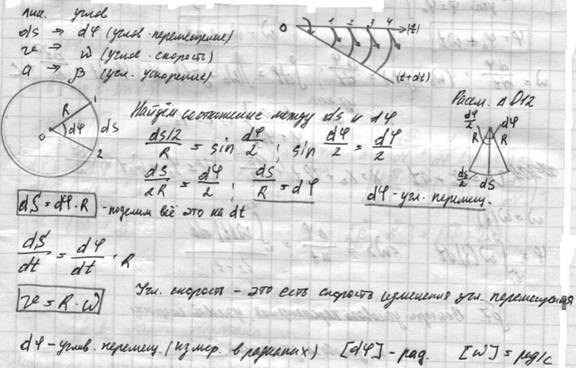 лин. углов
ds → dφ (углов. перемещение)
v → ω (углов. скорость)
a → β (угл. ускорение)
O 1 2 3 4 (t)
(t+dt)
R 1 dφ dS O 2
Найдём соотношение между ds и dφ
Рассм. Δ O12
ds/2 / R = sin dφ/2 ; sin dφ/2 = dφ/2
dφ/2 dφ R R ds/2 dS
dS/2R = dφ/2 ; dS/R = dφ
dφ - угл. перемещ.
dS = dφ · R - поделим всё это на dt
dS/dt = dφ/dt · R
v = R · ω
Угл. скорость - это есть скорость изменения угл. перемещения
dφ - углов. перемещ. (измер. в радианах) [dφ] - рад. [ω] = рад/с